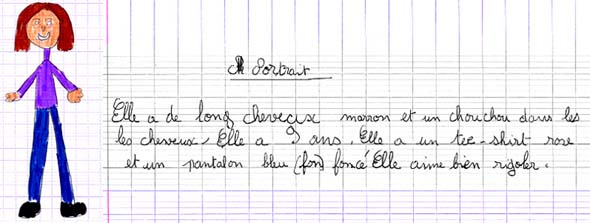 Portrait
Elle a de long cheveux marron et un chouchou dans les
les cheveux. Elle a 9 ans. Elle a un tee-shirt rose
et un pantalon bleu (fon) foncé Elle aime bien rigoler.